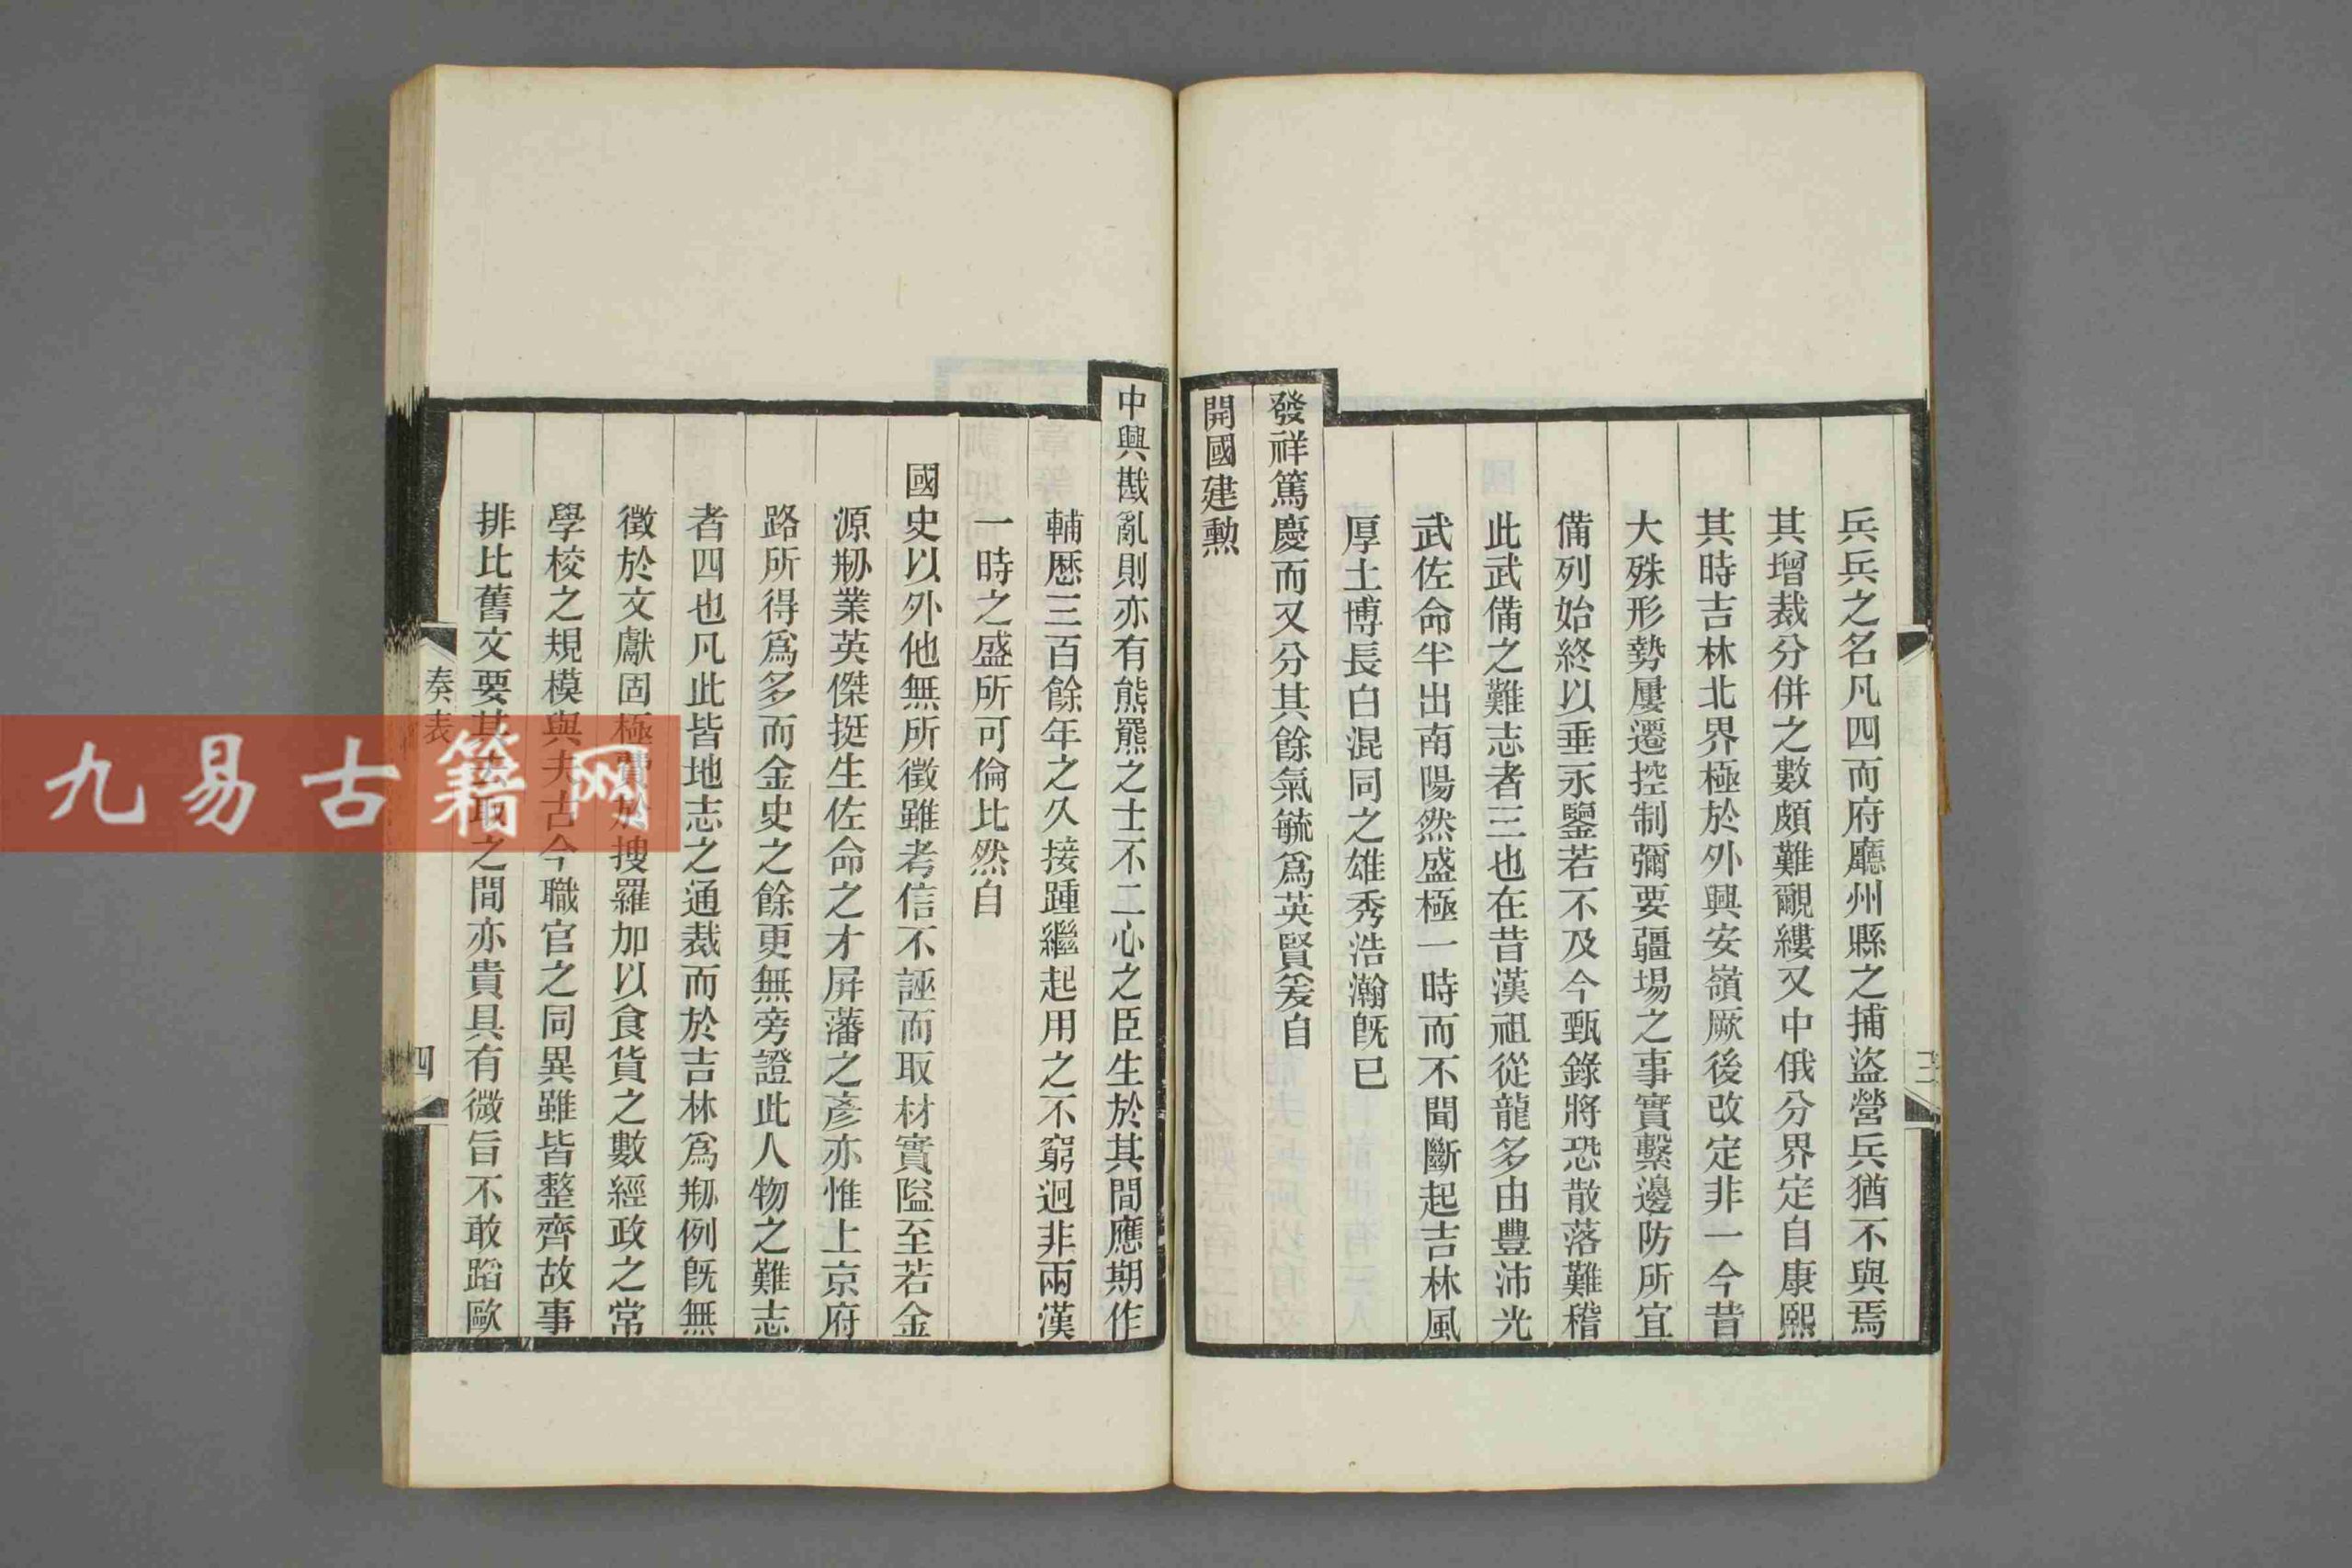 兵兵之名凡四而府廳州縣之捕盜營兵猶不與焉
其增裁分併之數頗難覼縷又中俄分界定自康熙
其時吉林北界極於外興安嶺厥後改定非一今昔
大殊形勢屢遷控制彌要疆場之事實繫邊防所宜
備列始終以垂永鑒若不及今甄錄將恐散落難稽
此武備之難志者三也在昔漢祖從龍多由豐沛光
武佐命半出南陽然盛極一時而不聞斷起吉林風
厚土博長白混同之雄秀浩瀚旣已
發祥篤慶而又分其餘氣毓爲英賢爰自
開國建勲
三
中興戡亂則亦有熊羆之士不二心之臣生於其間應期作
輔歷三百餘年之久接踵繼起用之不窮迥非兩漢
一時之盛所可倫比然自
國史以外他無所徵雖考信不誣而取材實隘至若金
源刱業英傑挺生佐命之才屏藩之彥亦惟上京府
路所得爲多而金史之餘更無旁證此人物之難志
者四也凡此皆地志之通裁而於吉林爲刱例旣無
徵於文獻固極費於搜羅加以食貨之數經政之常
學校之規模與夫古今職官之同異雖皆整齊故事
排比舊文要其去取之間亦貴具有微旨不敢蹈歐
奏表
四
九易古籍网